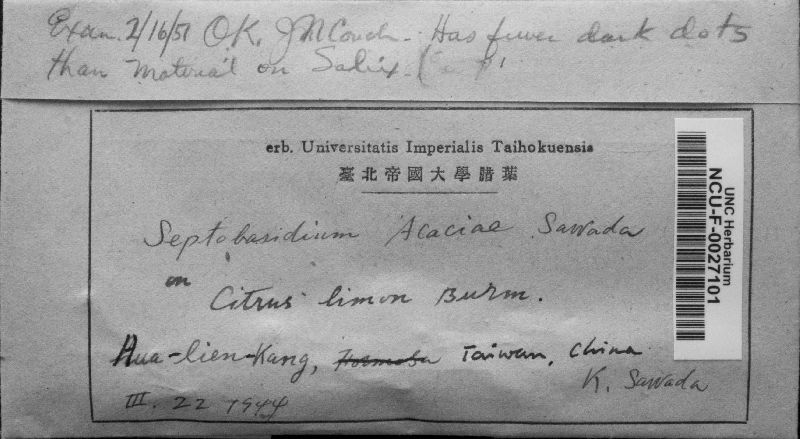 Exam. 2/16/51 OK. J N Couch - Has fewer dark dots
than material on Salix.
erb. Universitatis Imperialis Taihokuensis
臺北帝國大學腊葉
Septobasidium Acaciae Sawada
on
Citrus limon Burm.
Hua-lien-Kang, Formosa Taiwan, China
K. Sawada
III. 22 1944
UNC Herbarium
NCU-F-0027101